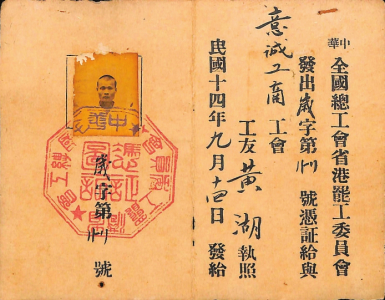 中華全國總工會省港罷工委員會
發出歲字第 號憑証給與
意誠工商工會
工友黃湖執照
民國十四年九月十四日發給
歲字第 號